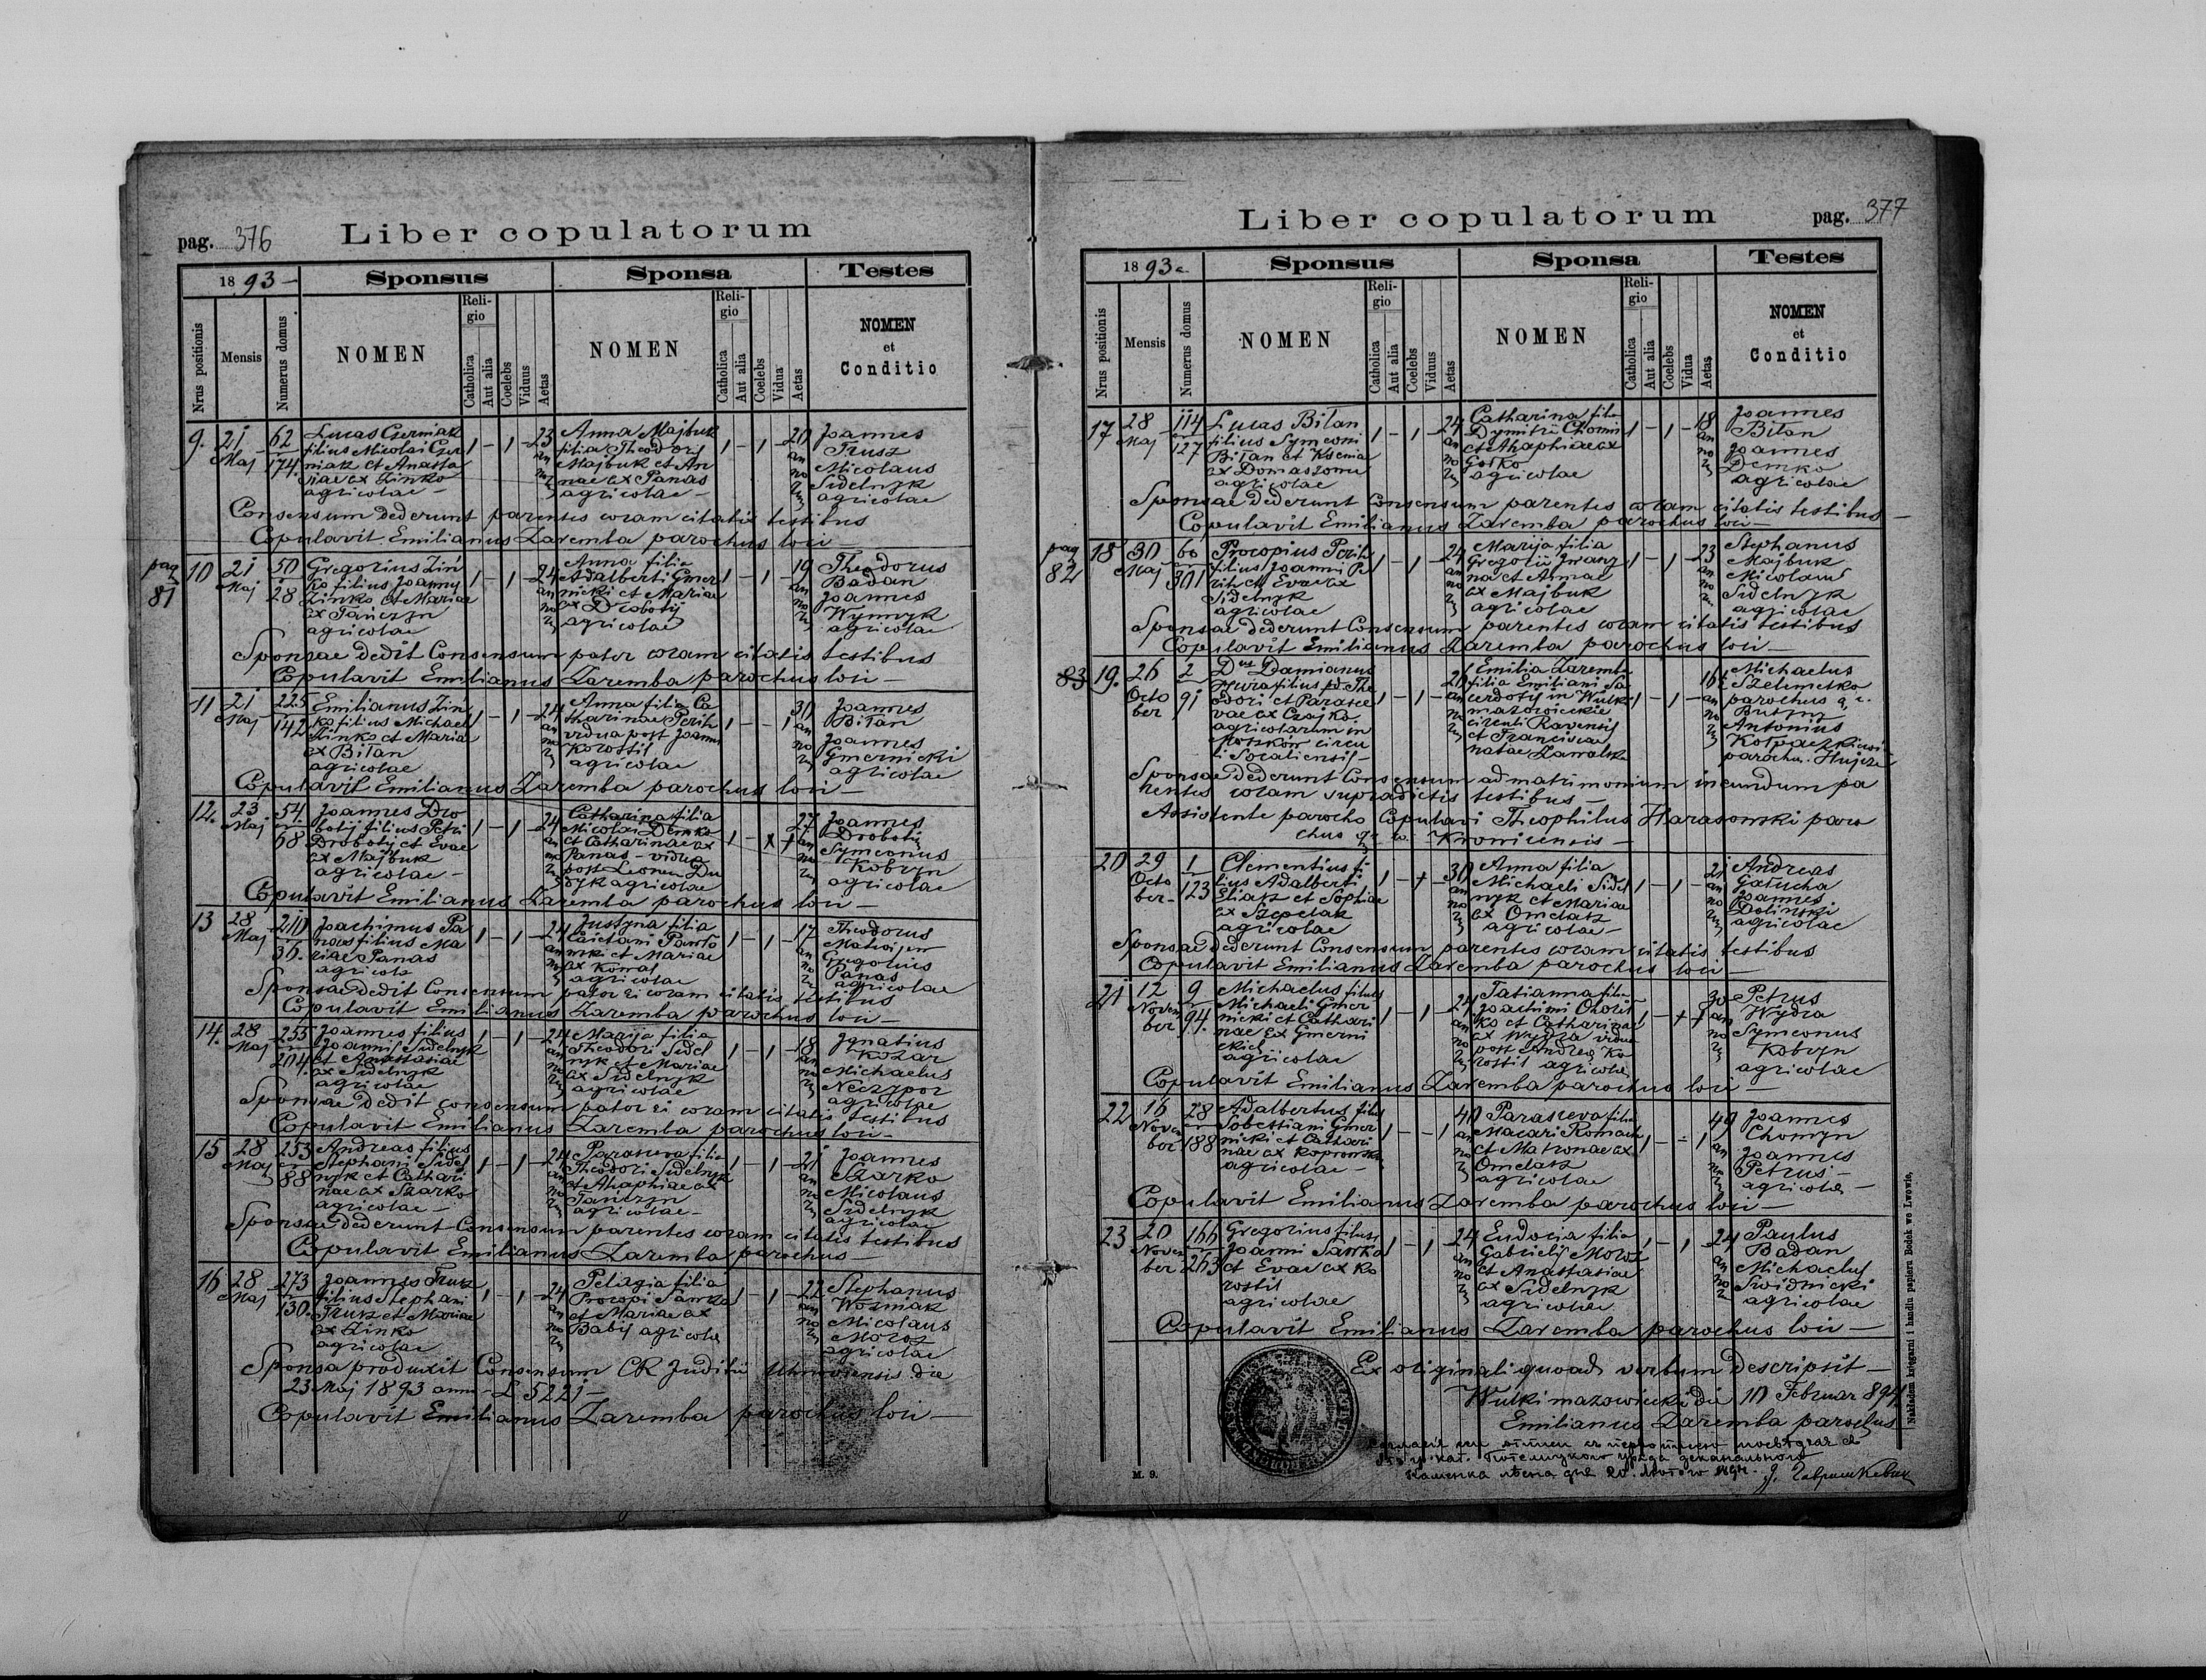 pag. 376
Liber copulatorum
1893
Sponsus
Sponsa
Testes
Nrus positionis
Mensis
Numerus domus
NOMEN
Religio
Catholica
Aut alia
Coelebs
Viduus
Aetas
NOMEN
Religio
Catholica
Aut alia
Coelebs
Vidua
Aetas
NOMEN
et
Conditio
9. 21 Maj 62 174
Lucas Czerniak
filius Nicolai Czer
niak et Anasta
siae ex Zinko
agricolae
1 - 1 - 23
Anna Majbuk
filia Theodori
Majbuk et An
nae ex Panas
agricolae
1 - 1 - 20
Joannes
Trusz
Nicolaus
Sidelnyk
agricolae
Consensum dederunt parentes coram citatis testibus
Copulavit Emilianus Zaremba parochus loci
pag 81
10 21 Maj 50 28
Gregorius Zin
ko filius Joannis
Zinko et Mariae
ex Tanczyn
agricolae
1 - 1 - 24
Anna filia
Adalberti Gmer
nicki et Mariae
ex Drobotij
agricolae
1 - 1 - 19
Theodorus
Badan
Joannes
Wynnyk
agricolae
Sponsae dedit Consensum pater coram citatis testibus
Copulavit Emilianus Zaremba parochus loci
11 21 Maj 225 142
Emilianus Zin
ko filius Michaeli
Zinko et Mariae
ex Bilan
agricolae
1 - 1 - 24
Anna filia Ca
tharinae Perih
vidua post Joanni
Korostil
agricolae
1 - - 1 30
Joannes
Bilan
Joannes
Gmernicki
agricolae
Copulavit Emilianus Zaremba parochus loci
12. 23 Maj 54 68
Joannes Dro
botij filius Petri
Drobotij et Evae
ex Majbuk
agricolae
1 - 1 - 24
Catharina filia
Nicolai Demko
et Catharinae ex
Panas - vidua
post Leonem
agricolae
27
Joannes
Drobotij
Symeonus
Kobryn
agricolae
Copulavit Emilianus Zaremba parochus loci
13 28 Maj 210 30
Joachimus Pa
nas filius Ma
riae Panas
agricola
1 - 1 - 24
Justyna filia
Caietani Pawlo
wski et Mariae
ex Kowal
agricolae
1 - 1 - 17
Theodorus
Gregorius
Panas
agricolae
Sponsae dedit Consensum pater ei coram citatis testibus
Copulavit Emilianus Zaremba parochus loci
14. 28 Maj 255 204
Joannes filius
Joannis Sidelnyk
et Anastasiae
ex Sidelnyk
agricolae
1 - 1 - 24
Marija filia
Theodori Sidel
nyk et Mariae
ex Sidelnyk
agricolae
1 - 1 - 18
Ignatius
Kozar
Michaelus
Neczypor
agricolae
Sponsae dedit consensum pater ei coram citatis testibus
Copulavit Emilianus Zaremba parochus loci
15 28 Maj 253 88
Andreas filius
Stephani Sidel
nyk et Cathari
nae ex Szarko
agricolae
1 - 1 - 24
Parasceva filia
Theodori Sidelnyk
et Ahaphiae ex
Tanczyn
agricolae
1 - 1 - 21
Joannes
Szarko
Nicolaus
Sidelnyk
agricolae
Sponsae dederunt Consensum parentes coram citatis testibus
Copulavit Emilianus Zaremba parochus
16 28 Maj 273 130
Joannes Trusz
filius Stephani
Trusz et Mariae
ex Zinko
agricolae
1 - 1 - 24
Pelagia filia
Procopi Sawka
et Mariae ex
Babij agricolae
1 - 1 - 22
Stephanus
Wozniak
Nicolaus
Moroz
agricolae
Sponsa produxit Consensum CR Juditii Uhnoviensis die
23 Maj 1893 anni L 5221
Copulavit Emilianus Zaremba parochus loci
Liber copulatorum
pag. 377
1893
Sponsus
Sponsa
Testes
Nrus positionis
Mensis
Numerus domus
NOMEN
Religio
Catholica
Aut alia
Coelebs
Viduus
Aetas
NOMEN
Religio
Catholica
Aut alia
Coelebs
Vidua
Aetas
NOMEN
et
Conditio
17 28 Maj 114 127
Lucas Bilan
filius Symeoni
Bilan et Kseniae
ex Domaszowec
agricolae
1 - 1 - 24
Catharina filia
Dymitrii Chomin
et Ahaphiae ex
Gorko
agricolae
1 - 1 - 18
Joannes
Bilan
Joannes
Demko
agricolae
Sponsae dederunt Consensum parentes coram citatis testibus
Copulavit Emilianus Zaremba parochus loci
pag 82
18 30 Maj 60 301
Procopius Perih
filius Joanni Pe
rih et Evae ex
Sidelnyk
agricolae
1 - 1 - 24
Marija filia
Gregorii Iwany
na et Annae
ex Majbuk
agricolae
1 - 1 - 23
Stephanus
Majbuk
Nicolaus
Sidelnyk
agricolae
Sponsae dederunt Consensum parentes coram citatis testibus
Copulavit Emilianus Zaremba parochus loci
83
19. 26 October 2 91
Dnus Damianus
filius Theo
dori et Parasce
vae ex Czajko
agricolarum in
circu
li Socaliensis
1 - 1 -
Emilia Zaremba
filia Emiliani Sa
cerdotis in Wulka
mazowiecka
circuli Ravensis
et Franciscae
natae Zawalska
1 - 1 - 16
Michaelus
Szelemetko
parochus g. c.
Antonius
parochus Hujcze
Sponsae dederunt Consensum ad matrimonium ineundum pa
rentes coram supradictis testibus
Assistente parocho Copulavi Theophilus Harasowski paro
chus
20 29 October 1 123
Clementius fi
lius Adalberti
Eliasz et Sophiae
ex Szpelak
agricolae
30
Anna filia
Michaeli Sidel
nyk et Mariae
ex Omelasz
agricolae
1 - 1 - 21
Andreas
Galucha
Joannes
Dolinski
agricolae
Sponsae dederunt Consensum parentes coram citatis testibus
Copulavit Emilianus Zaremba parochus loci
21 12 November 9 94
Michaelus filius
Michaeli Gmer
nicki et Cathari
nae ex Gmerni
ckich
agricolae
1 - 1 - 24
Tatianna filia
Joachimi
ko et Catharinae
ex Wydra vidua
post Andrea Ko
rostil agricolae
30
Petrus
Wydra
Symeonus
Kobryn
agricolae
Copulavit Emilianus Zaremba parochus loci
22 16 November 28 188
Adalbertus filius
Sobestiani Gmer
nicki et Cathari
nae ex Koprowska
agricolae
1 - - 1 40
Parasceva filia
Macari Romach
et Matronae ex
Omelasz
agricolae
49
Joannes
Chomyn
Joannes
Petrus
agricolae
Copulavit Emilianus Zaremba parochus loci
23 20 November 166 263
Gregorius filius
Joanni Sawka
et Evae ex Ko
rostil
agricolae
1 - 1 - 24
Eudocia filia
Gabrielis Moroz
et Anastasiae
ex Sidelnyk
agricolae
1 - 1 - 24
Paulus
Badan
Michaelus
Swidnicki
agricolae
Copulavit Emilianus Zaremba parochus loci
Ex originali quoad verbum descripsit
Wulki mazowiecki die 10 Februar 894
Emilianus Zaremba parochus
M. 9.
Nakładem księgarni i handlu papieru Bodek we Lwowie.